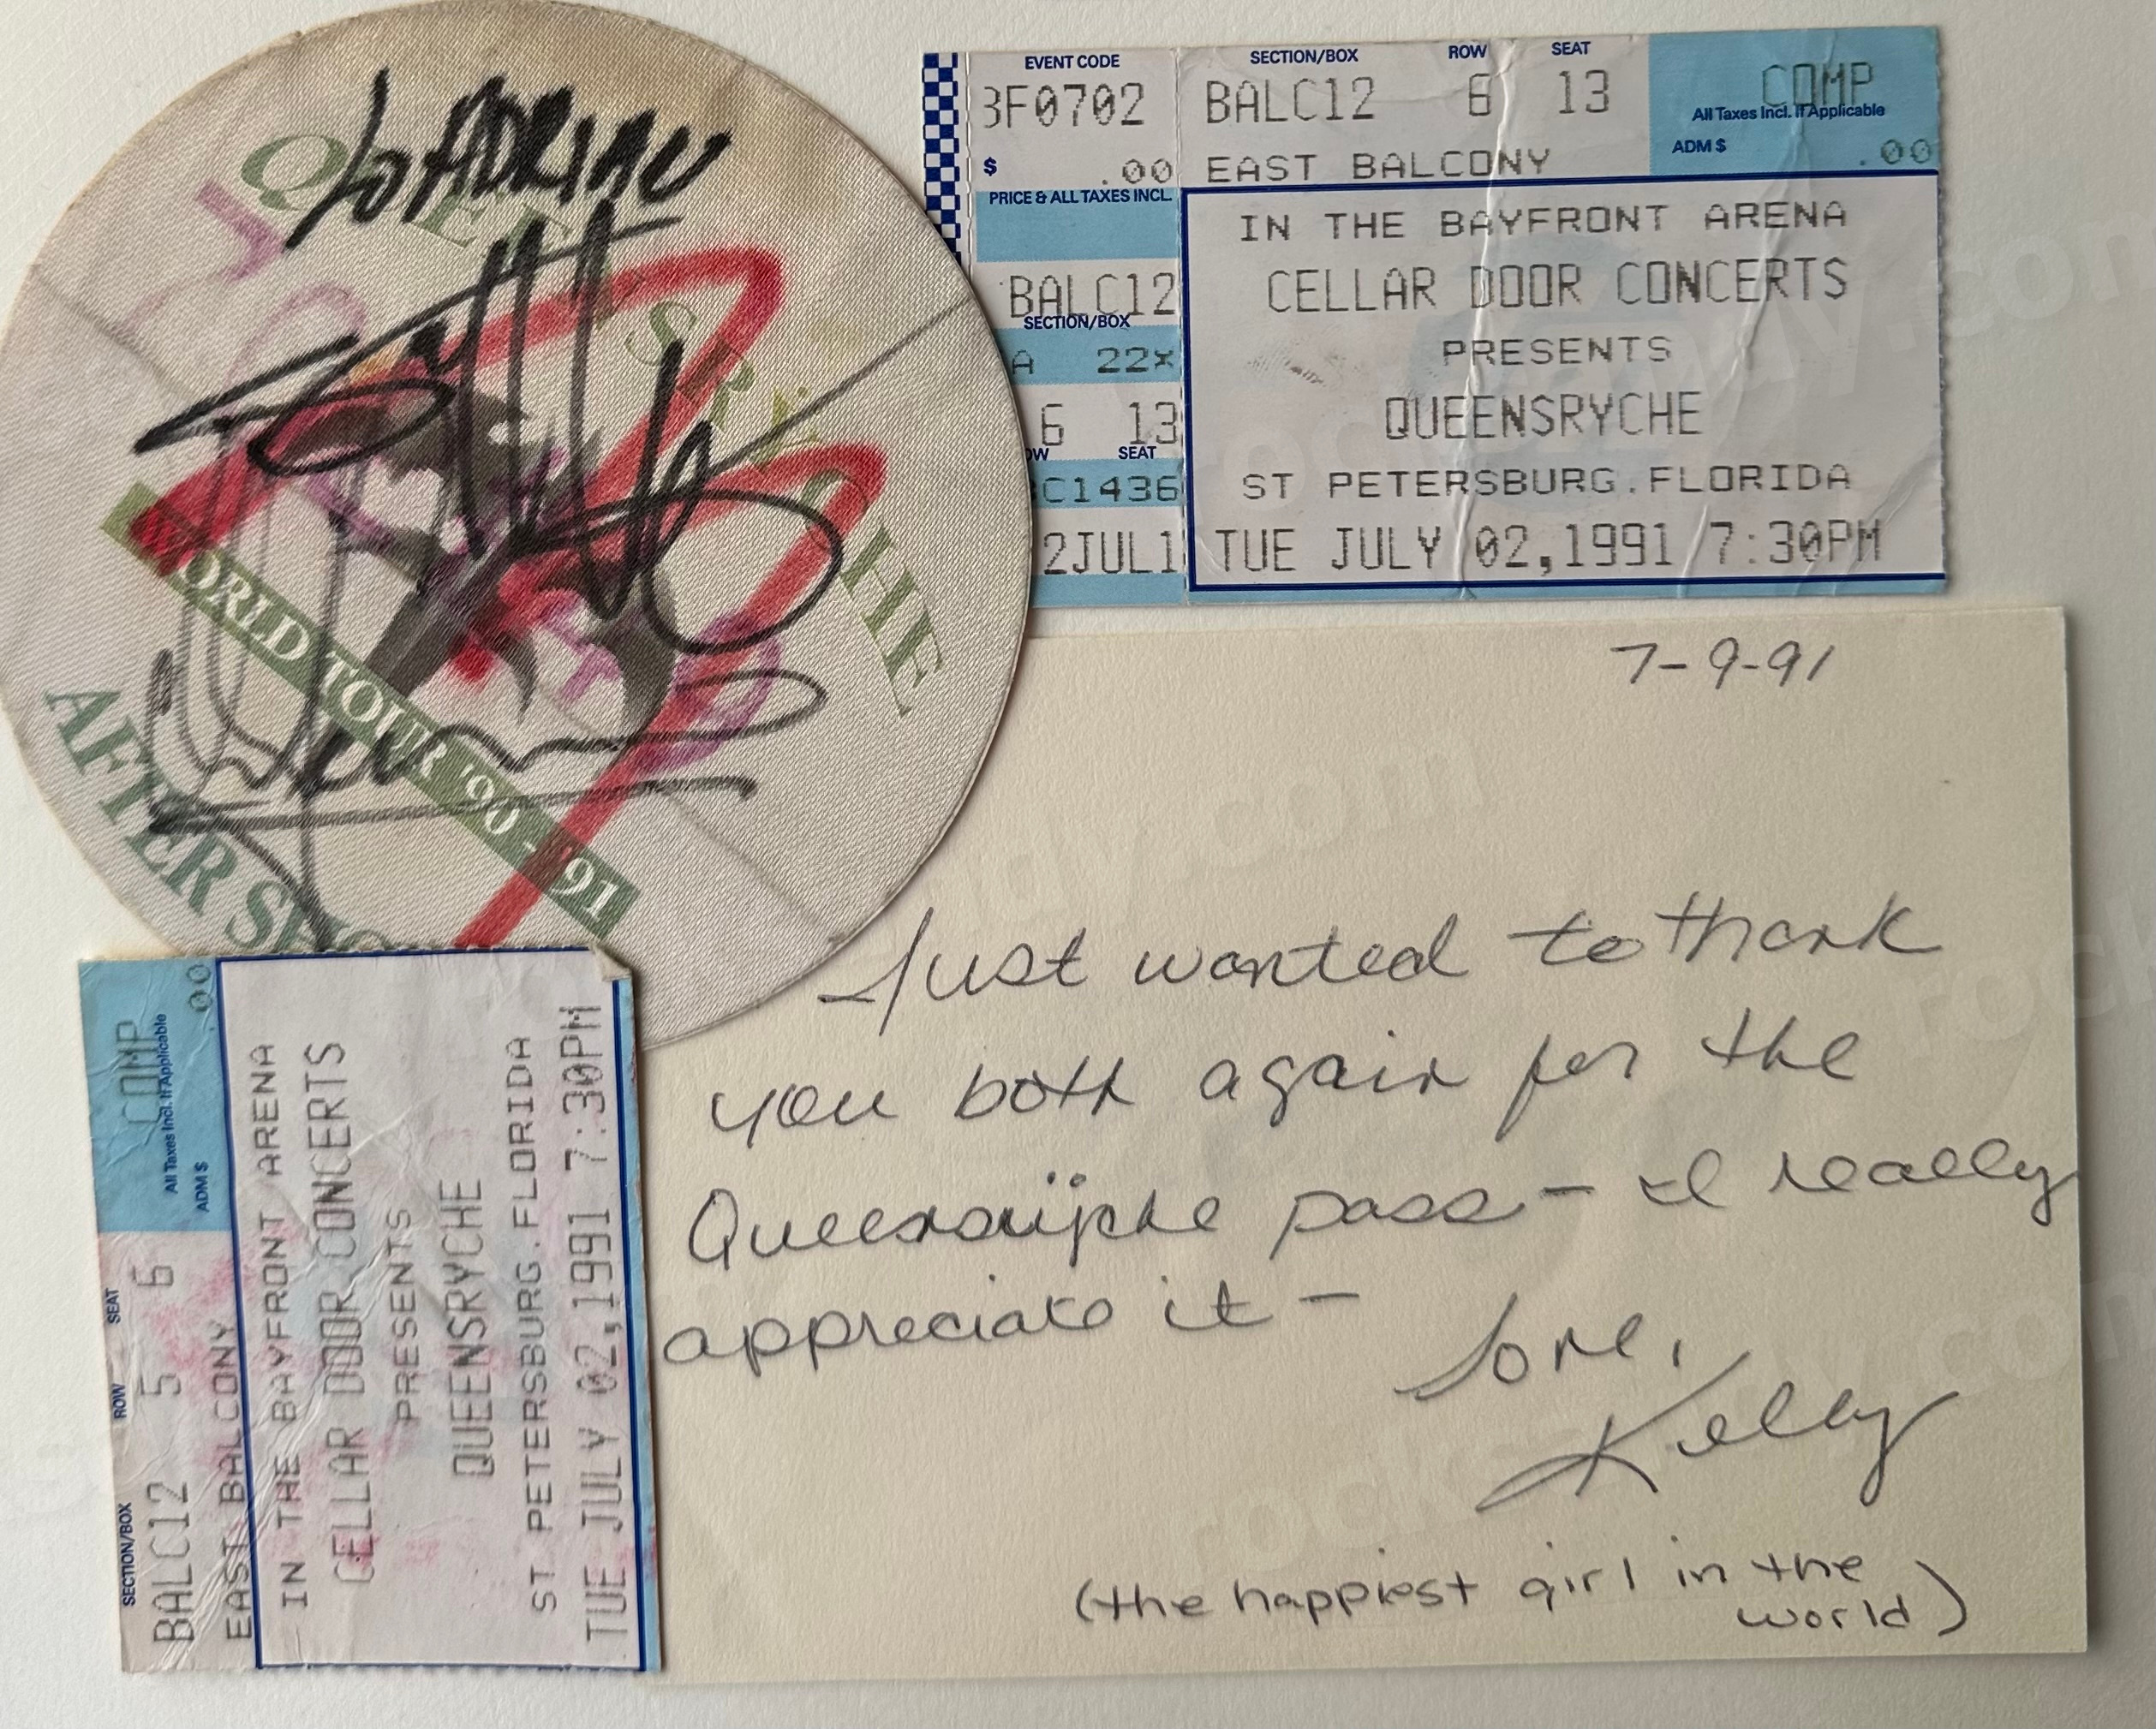 to ADRIAN
QUEENSRYCHE
WORLD TOUR '90 - '91
AFTER SHO
EVENT CODE
SECTION/BOX ROW SEAT
3F0702
BALC12 6 13
COMP
All Taxes Incl. If Applicable
$ .00
EAST BALCONY
ADM $ .00
PRICE & ALL TAXES INCL.
BALC12
SECTION/BOX
A 22x
6 13
OW SEAT
C1436
2JUL1
IN THE BAYFRONT ARENA
CELLAR DOOR CONCERTS
PRESENTS
QUEENSRYCHE
ST PETERSBURG.FLORIDA
TUE JULY 02,1991 7:30PM
7-9-91
Just wanted to thank
you both again for the
Queensrÿche pass - I really
appreciate it -
Love,
Kelly
(the happiest girl in the
world)
SECTION/BOX ROW SEAT
BALC12 5 6
COMP
All Taxes Incl. If Applicable
ADM $ .00
EAST BALCONY
IN THE BAYFRONT ARENA
CELLAR DOOR CONCERTS
PRESENTS
QUEENSRYCHE
ST PETERSBURG.FLORIDA
TUE JULY 02,1991 7:30PM